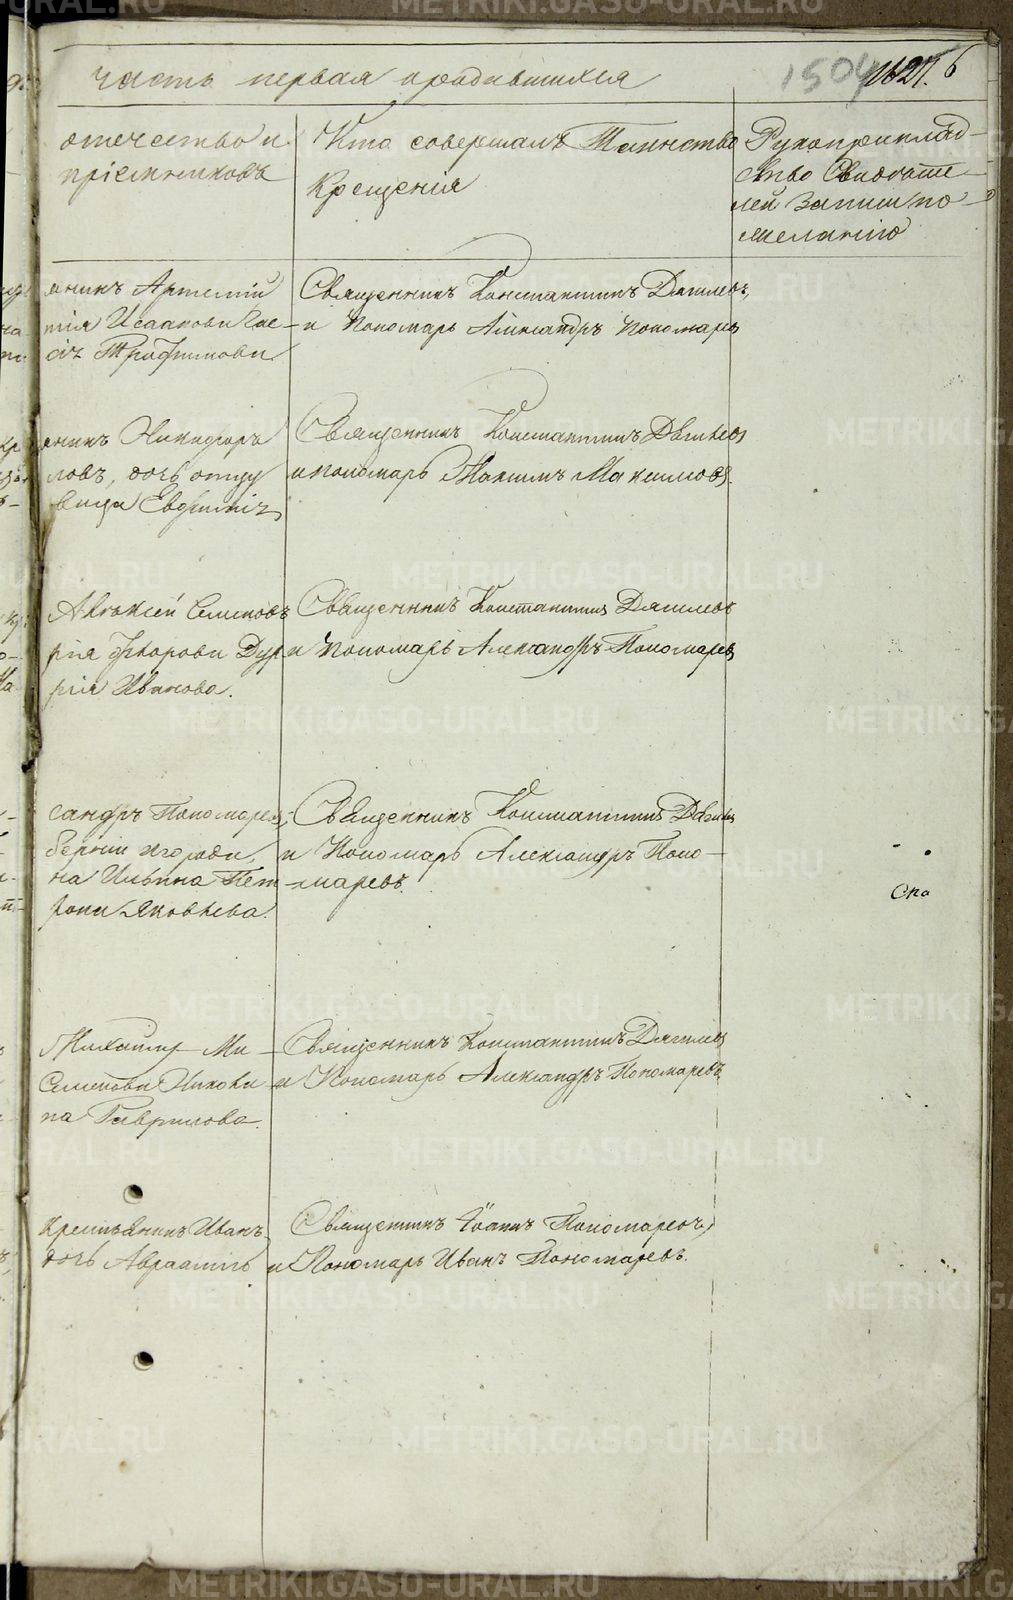 часть первая о родившихся
1504 1627. 6
отечество и
пріемниковъ
Кто совершалъ Таинство
Крещенія
Рукоприклад-
ство Свидѣте-
лей Записи по
желанію
янинъ Артемій
тія Исаакови
Трофимови
Священникъ Константинъ Дягилевъ,
и Пономарь Александръ Пономаревъ
янинъ Никифоръ
ловъ, дочь отцу
вица Евфиміи
Священникъ Константинъ Дягилевъ
и пономарь Максимъ Максимовъ.
Алексѣй Семеновъ
рія Ѳедорови
рія Иванова.
Священникъ Константинъ Дягилевъ
и Пономарь Александръ Пономаревъ
сандръ Пономарев
берніи городи,
на Ильина Пет
рони Яковлева.
Священникъ Константинъ Дягилевъ
и Пономарь Александръ Поно-
-маревъ.
Ска
Михаилу Ми-
Семенови
на Гаврилова.
Священникъ Константинъ Дягилевъ
и Пономарь Александръ Пономаревъ.
Крестьянинъ Иванъ
дочь Авраамія
Священникъ Іоаннъ Пономаревъ,
и Пономарь Иванъ Пономаревъ.
METRIKI.GASO-URAL.RU